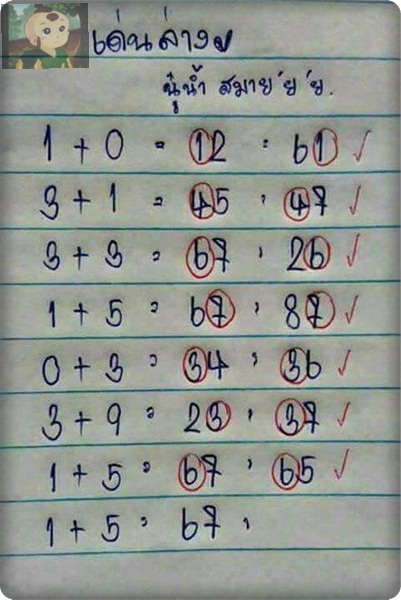 เด่นล่าง
นู๋น้ำ สมาย'ย'ย.
1 + 0 = 12 : 61 ✓
3 + 1 = 45 , 47 ✓
3 + 3 = 67 , 26 ✓
1 + 5 = 67 , 87 ✓
0 + 3 = 34 , 36 ✓
3 + 9 = 23 , 37 ✓
1 + 5 = 67 , 65 ✓
1 + 5 = 67 ,